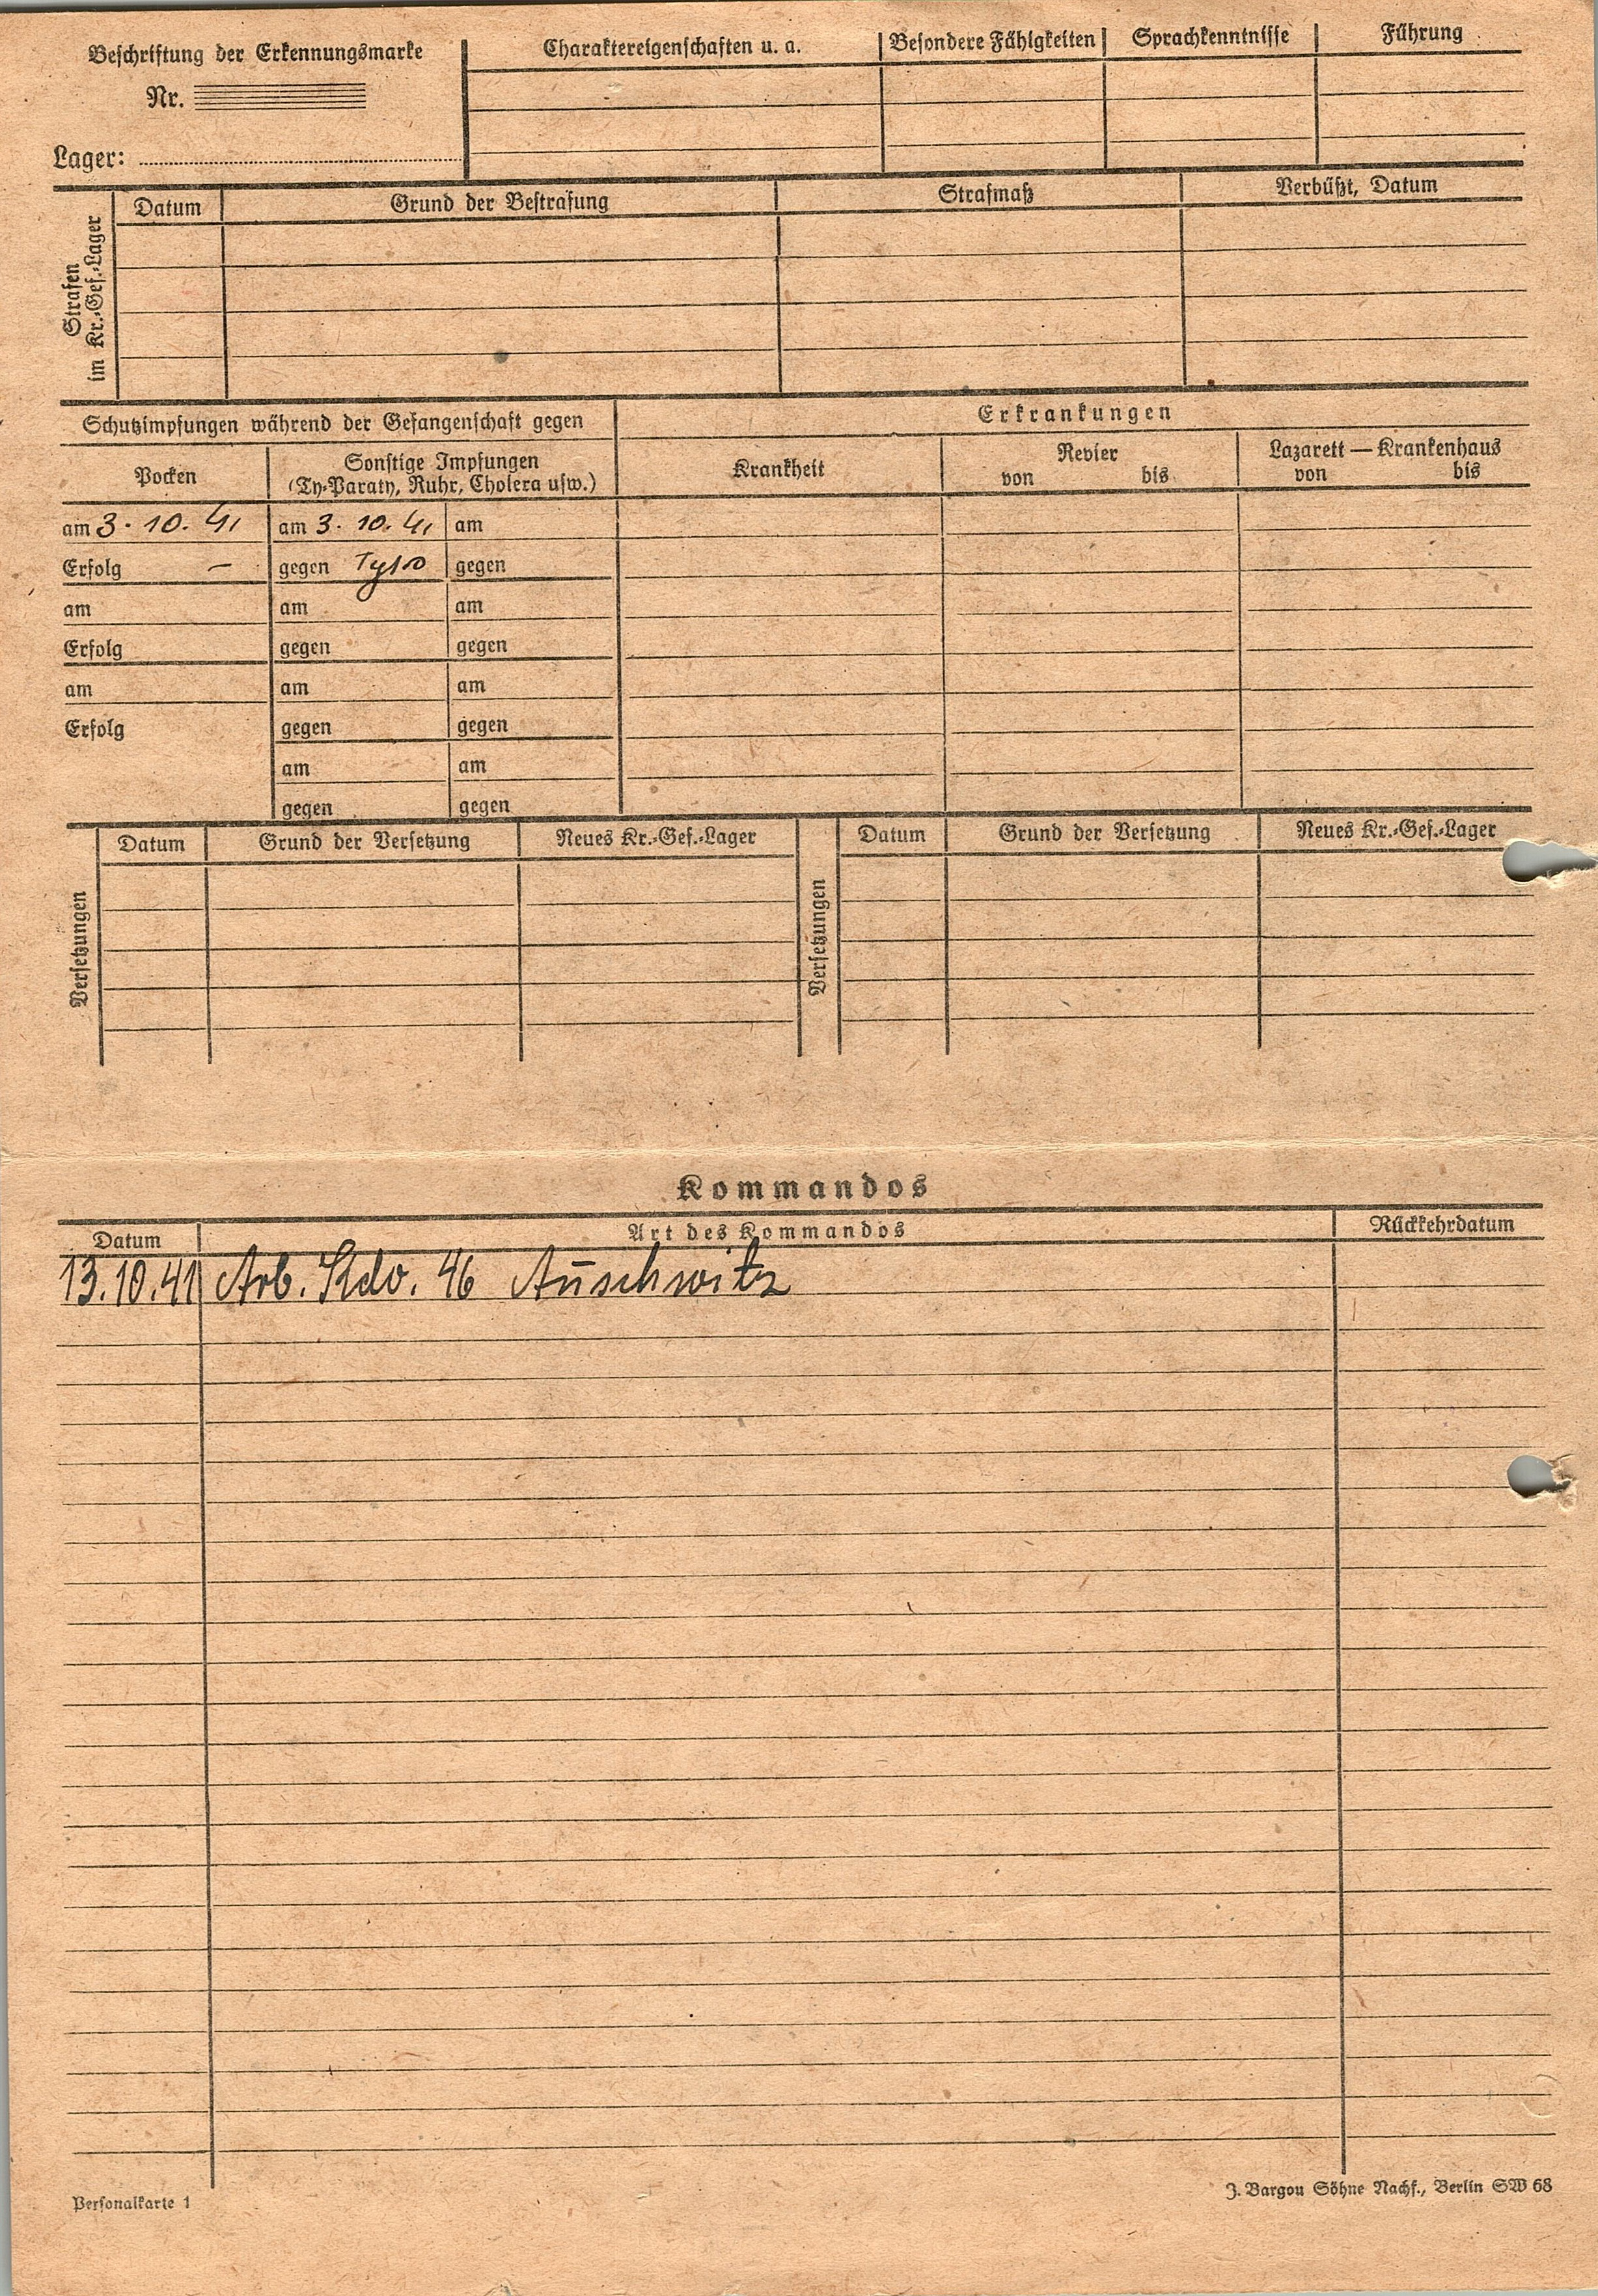 Beschriftung der Erkennungsmarke
Nr.
Lager:
Charaktereigenschaften u. a.
Besondere Fähigkeiten
Sprachkenntnisse
Führung
Strafen
im Kr.-Gef.-Lager
Datum
Grund der Bestrafung
Strafmaß
Verbüßt, Datum
Schutzimpfungen während der Gefangenschaft gegen
Erkrankungen
Pocken
Sonstige Impfungen
(Ty-Paraty, Ruhr, Cholera usw.)
Krankheit
Revier
von bis
Lazarett — Krankenhaus
von bis
am 3. 10. 41 am 3. 10. 41 am
Erfolg – gegen gegen
am am am
Erfolg gegen gegen
am am am
Erfolg gegen gegen
am am
gegen gegen
Versetzungen
Datum Grund der Versetzung Neues Kr.-Gef.-Lager
Versetzungen
Datum Grund der Versetzung Neues Kr.-Gef.-Lager
Kommandos
Datum Art des Kommandos Rückkehrdatum
13.10.41 Arb. Kdo. 46 Auschwitz
Personalkarte 1
J. Bargou Söhne Nachf., Berlin SW 68